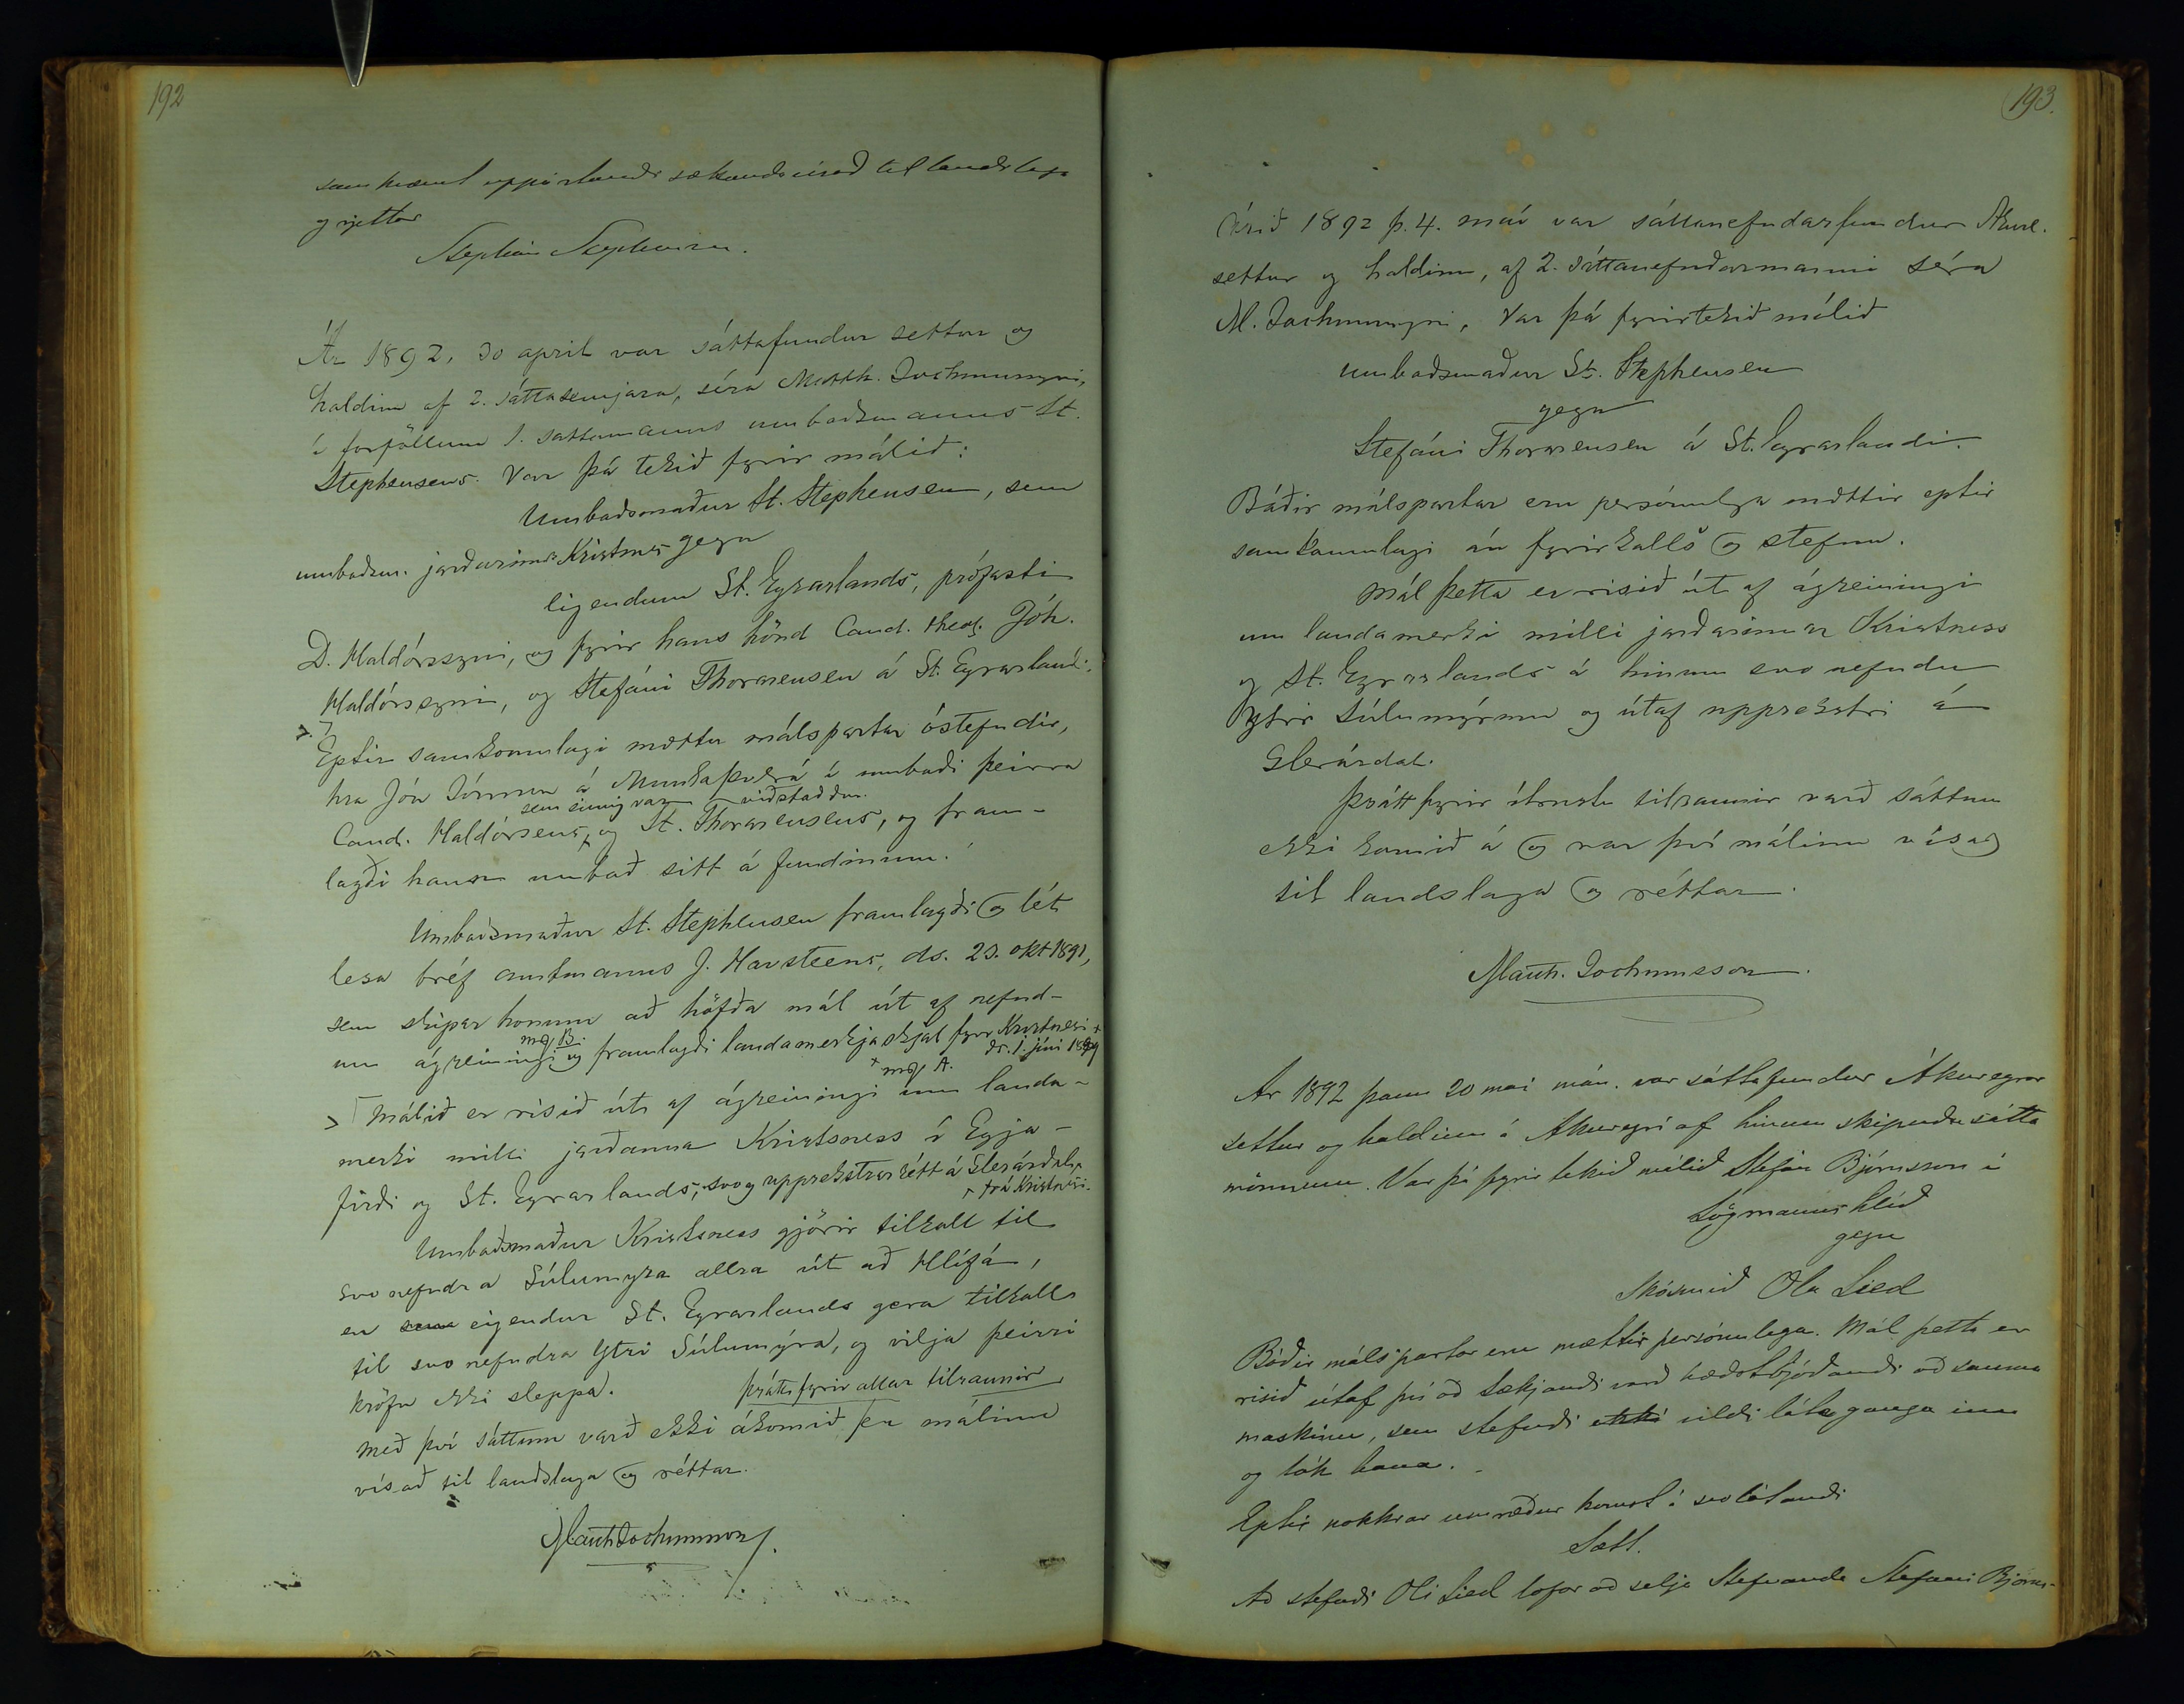 192
samkvæmt uppástandi sækanda vísað til landslaga
og rjettar
Stephán Stephensen.
Ár 1892, 30 april var sáttafundur settur og
haldinn af 2. sáttasemjara, séra Matth. Jochumssyni,
í forföllum 1. sattamanns umboðsmanns St.
Stephensens. Var þá tekið fyrir málið:
Umboðsmaður St. Stephensen, sem
umboðsm. jarðarinnar Kristnes gegn
eigendum St. Eyrarlands, prófasti
D. Haldórssyni, og fyrir hans hönd Cand. theol. Jóh.
Haldórssyni, og Stefáni Thorarensen á St. Eyrarlandi.
Eptir samkomulagi mættu málspartar óstefndir,
hra Jón Jónsson á Munkaþverá í umboði þeirra
sem einnig var viðstaddur.
Cand. Haldórsens, og St. Thorarensens, og fram-
lagði hann umboð sitt á fundinum.
Umboðsmaður St. Stephensen framlagði og lét
lesa bréf amtmanns J. Havsteens, ds. 23. okt 1891,
sem skipar honum að höfða mál út af nefnd-
um ágreiningi mrk B. og framlagði landamerkjaskjal fyrir Kristnesi +
ds. 1. júni 1889
+ mrk A.
> Málið er risið út af ágreiningi um landa-
merki milli jarðanna Kristsness í Eyja-
firði og St. Eyrarlands, svo og upprekstrarrétt á Glerárdal
frá Kristnesi.
Umboðsmaður Kristsness gjörir tilkall til
svo nefndra Súlumyra allra út að Hlífá,
en eigendur St. Eyrarlands gera tilkall
til svo nefndra Ytri Súlumýra, og vilja þeirri
kröfu ekki sleppa.
þrátt fyrir allar tilraunir
Með því sáttum varð ekki ákomið er málinu
vísað til landslaga og réttar.
Matth Jochumsson

193.
Árið 1892 þ. 4. maí var sáttanefndarfundur Akure.
settur og haldinn, af 2. sáttanefndarmanni séra
M. Jochumssyni, Var þá fyrirtekið málið
umboðsmaður St. Stephensen
gegn
Stefáni Thorarensen á St. Eyrarlandi.
Báðir málspartar eru persónulega mættir eptir
samkomulagi án fyrirkalls og stefnu.
Mál þetta er risið út af ágreiningi
um landamerki milli jarðarinnar Kristness
og St. Eyrarlands á hinum svo nefndu
Ytri Súlumýrum og útaf upprekstri á
Glerárdal.
Þrátt fyrir ítrustu tilraunir varð sáttum
ekki komið á og var því málinu vísað
til landslaga og réttar.
Matth. Jochumsson.
Ár 1892 þann 20 mai mán. var sáttafundur Akureyrar
settur og haldinn á Akureyri af hinum skipuðu sátta
mönnum. Var þá fyrir tekið málið Stefán Björnsson í
Lögmannshlíð
gegn
Skósmið Ola Lied
Báðir málspartar eru mættir persónulega. Mál þetta er
risið útaf því að sækjandi varð hæðstbjóðandi að sauma
maskínu, sem stefndi ekki vildi láta ganga inn
og tók hana.
Eptir nokkrar umræður komst á svolátandi
Sætt.
Að stefndi Oli Lied lofar að selja Stefnanda Stefani Björns-